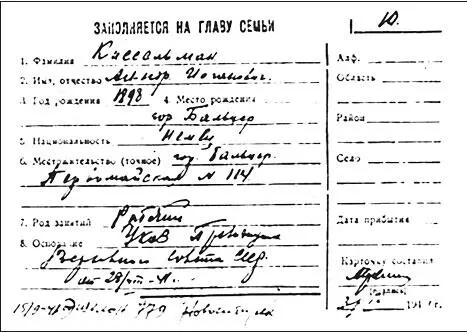 ЗАПОЛНЯЕТСЯ НА ГЛАВУ СЕМЬИ
1. Фамилия Кассельман
2. Имя, отчество
3. Год рождения 1898 4. Место рождения
гор Бальцер
5. Национальность Немец
6. Местожительство (точное) гор. Бальцер.
Первомайская № 114
7. Род занятий Рабочий
8. Основание Указ Президиума
Верховного Совета СССР
от 28/VIII-41.
Новосибирск
Ю.
Алф.
Область
Район
Село
Дата прибытия
Карточку составил